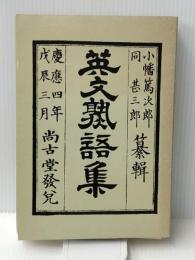 小幡篤次郎
同 甚三郎 纂輯
英文熟語集
慶應四年
戊辰三月 尚古堂發兌